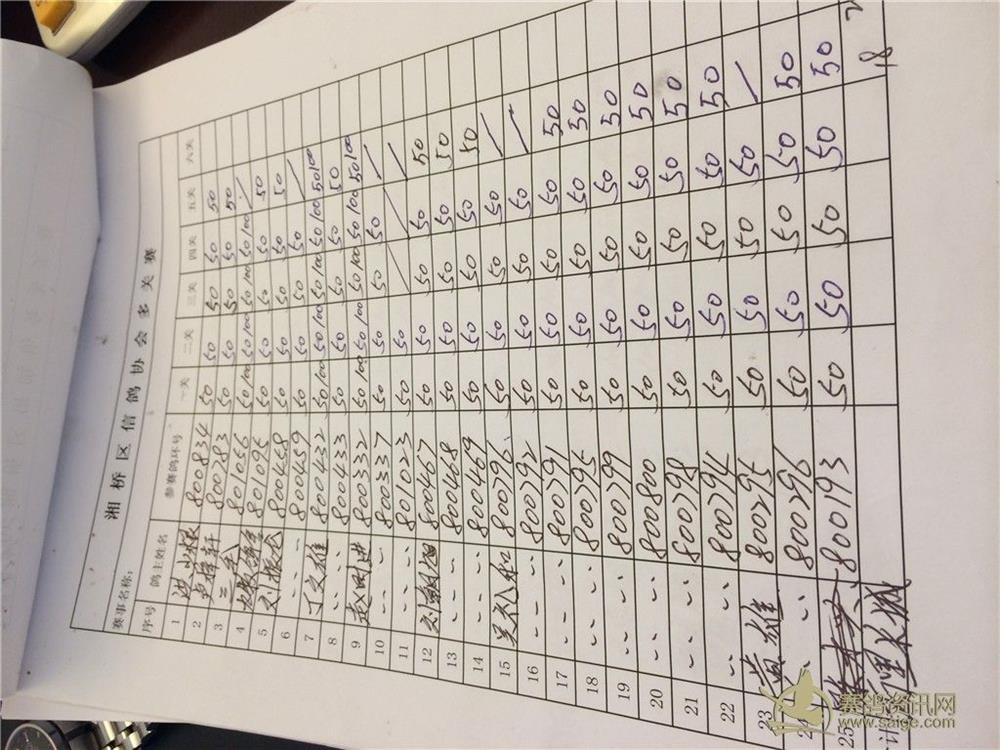 湘桥区信鸽协会多关赛
赛事名称：
序号 鸽主姓名 参赛鸽环号 一关 二关 三关 四关 五关 六关
1 800834 50 50 50 50 50
2 800783 50 50 50 50 50
3 801056 50/100 50/100 50 50/100 /
4 801095 50 50 50 50 50
5 800458 50 50 50 50 50
6 800459 50 50 50 50 /
7 丁文雄 800432 50/100 50/100 50/100 50/100 50/100
8 800433 50 50 50 50 50
9 800332 50/100 50/100 50/100 50/100 50/100
10 800337 50 50 50 50 /
11 801023 50 50 / / /
12 800467 50 50 50 50 50
13 800468 50 50 50 50 50
14 800469 50 50 50 50 50
15 800796 50 50 50 50 /
16 800792 50 50 50 50 /
17 800791 50 50 50 50 50
18 800795 50 50 50 50 50
19 800799 50 50 50 50 50
20 800800 50 50 50 50 50
21 800798 50 50 50 50 50
22 800794 50 50 50 50 50
23 黄雄 800295 50 50 50 50 /
24 800296 50 50 50 50 50
25 800193 50 50 50 50 50
计
18
赛鸽资讯网
www.saige.com